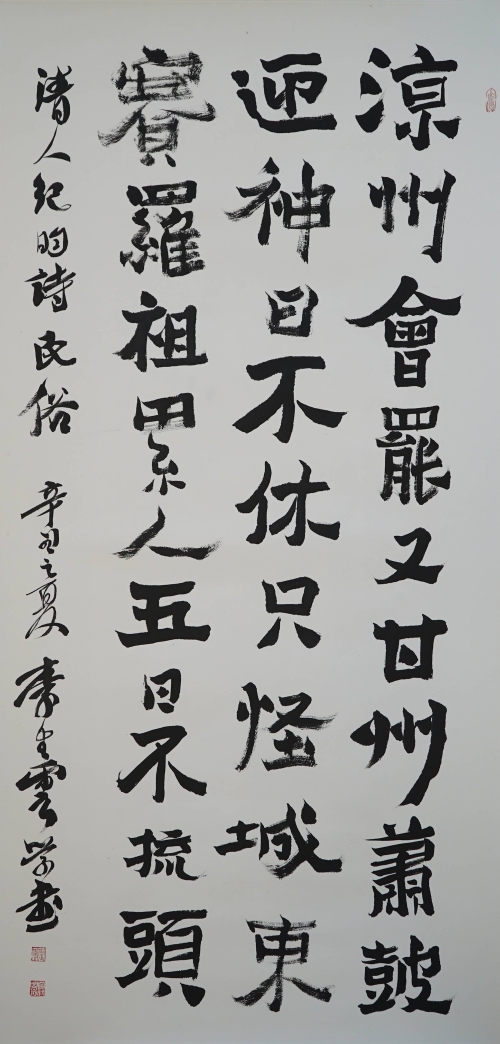 涼州會罷又甘州蕭皷
迎神日不休只怪城東
賽羅祖累人五日不梳頭
清人紀昀詩民俗 辛丑之夏 李雲学书